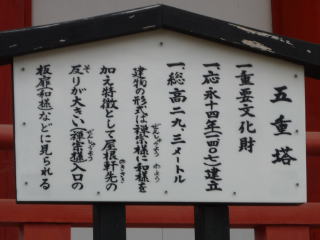 五重塔
一、重要文化財
一、応永十四年(一四〇七)建立
一、総高二九、三メートル
建物の形式は禅宗様に和様を
加え特徴として屋根軒先の
反りが大きい(禅宗様)入口の
板扉(和様)などに見られる